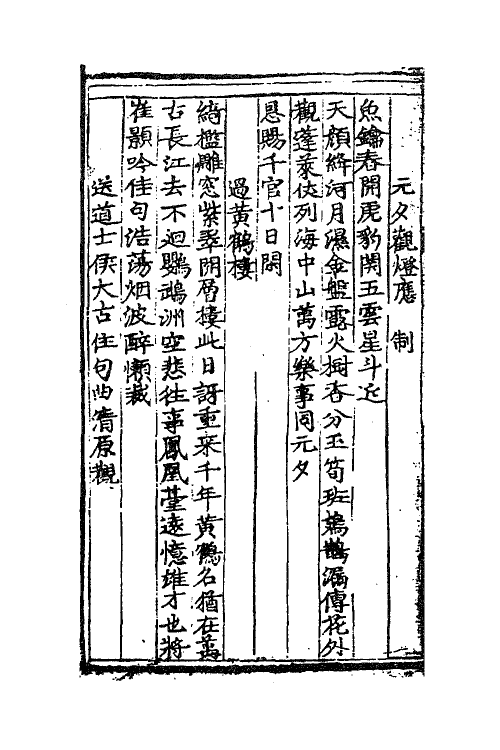 元夕觀燈應　制
魚鑰春開虎豹關五雲星斗近
天顔絳河月濕金盤露火樹香分玉筍班鳷鵲漏傳花外
觀蓬萊仗列海中山萬方樂事同元夕
恩賜千官十日閑
過黃鶴樓
綺檻雕窓紫翠開層樓此日訝重来千年黃鶴名猶在萬
古長江去不迴鸚鵡洲空悲往事鳳凰臺遠憶雄才也將
崔顥吟佳句浩蕩烟波醉懶裁
送道士侯大古住句曲清原觀